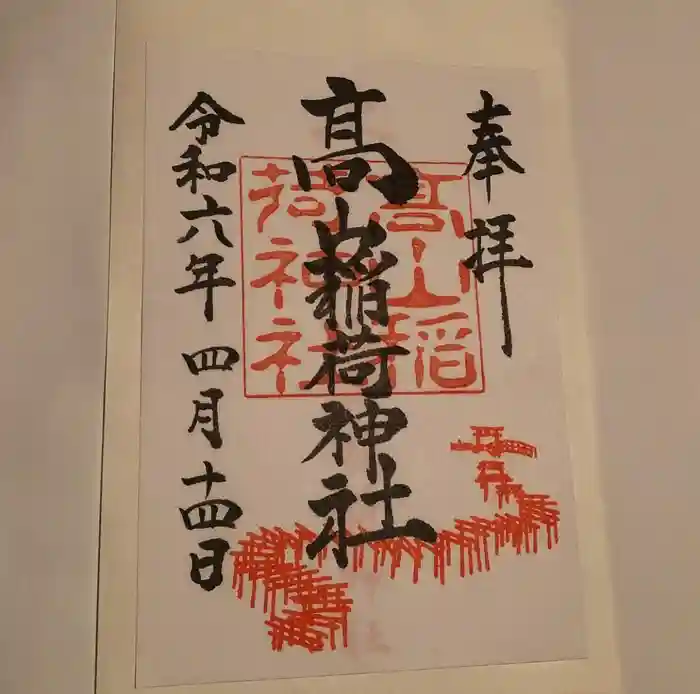 奉拝
髙山稲荷神社
髙山稲
荷神社
令和六年四月十四日